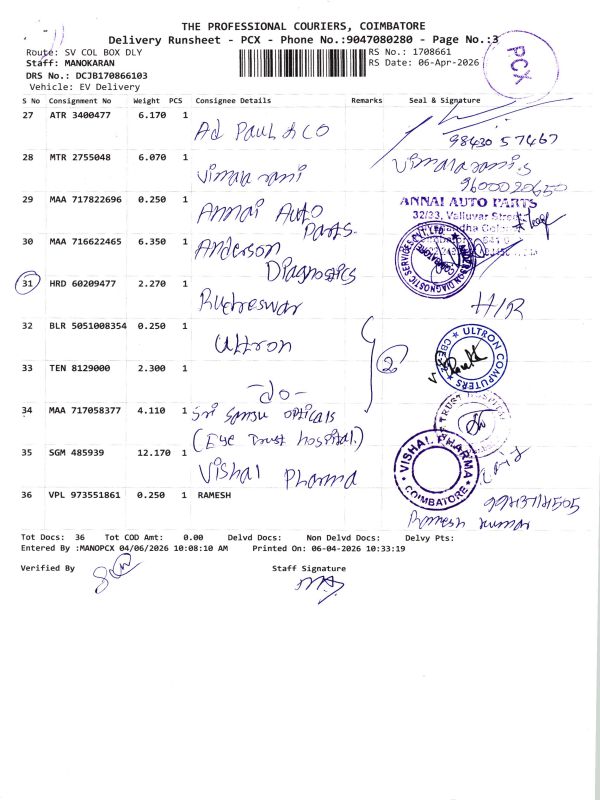 THE PROFESSIONAL COURIERS, COIMBATORE
Delivery Runsheet - PCX - Phone No.:9047080280 - Page No.:3
Route: SV COL BOX DLY
RS No.: 1708661
Staff: MANOKARAN
RS Date: 06-Apr-2026
PCX
DRS No.: DCJB170866103
Vehicle: EV Delivery
S No Consignment No Weight PCS Consignee Details Remarks Seal & Signature
27 ATR 3400477 6.170 1 Ad Paul & CO
98430 57467
28 MTR 2755048 6.070 1 Vimala rani
Vimalarani.S
9600020650
29 MAA 717822696 0.250 1 Annai Auto Parts.
ANNAI AUTO PARTS
32/33, Valluvar Street
30 MAA 716622465 6.350 1 Anderson Diagnostics
ANDERSON DIAGNOSTIC SERVICES PVT. LTD.
31 HRD 60209477 2.270 1 Rudreswar
H/R
32 BLR 5051008354 0.250 1 Ultron
2
ULTRON COMPUTERS
33 TEN 8129000 2.300 1 -do-
34 MAA 717058377 4.110 1 Sri Sansu opticals
(Eye Trust hospital.)
35 SGM 485939 12.170 1 Vishal Pharma
VISHAL PHARMA
COIMBATORE
36 VPL 973551861 0.250 1 RAMESH
Ramesh kumar
Tot Docs: 36 Tot COD Amt: 0.00 Delvd Docs: Non Delvd Docs: Delvy Pts:
Entered By :MANOPCX 04/06/2026 10:08:10 AM Printed On: 06-04-2026 10:33:19
Verified By Staff Signature